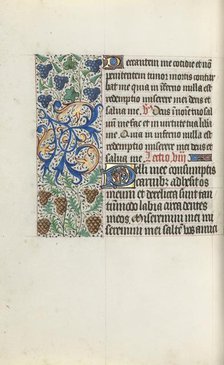 Peccantem me cotidie et nō
penitentem timor mortis contur
bat me quia in inferno nulla est
redemptio miserere mei deus et
salva me. Deus in noīe tuo sal
uum me fac et in uirtute tua libera
me. Quia in inferno nulla est
redemptio miserere mei deus et
salua me. Lectio viii
Pelli mee consumptis
carnibus adhesit os
meum et derelicta sunt tan
tūmodo labia circa dentes
meos. Miseremini mei mi
seremini mei saltē vos amici